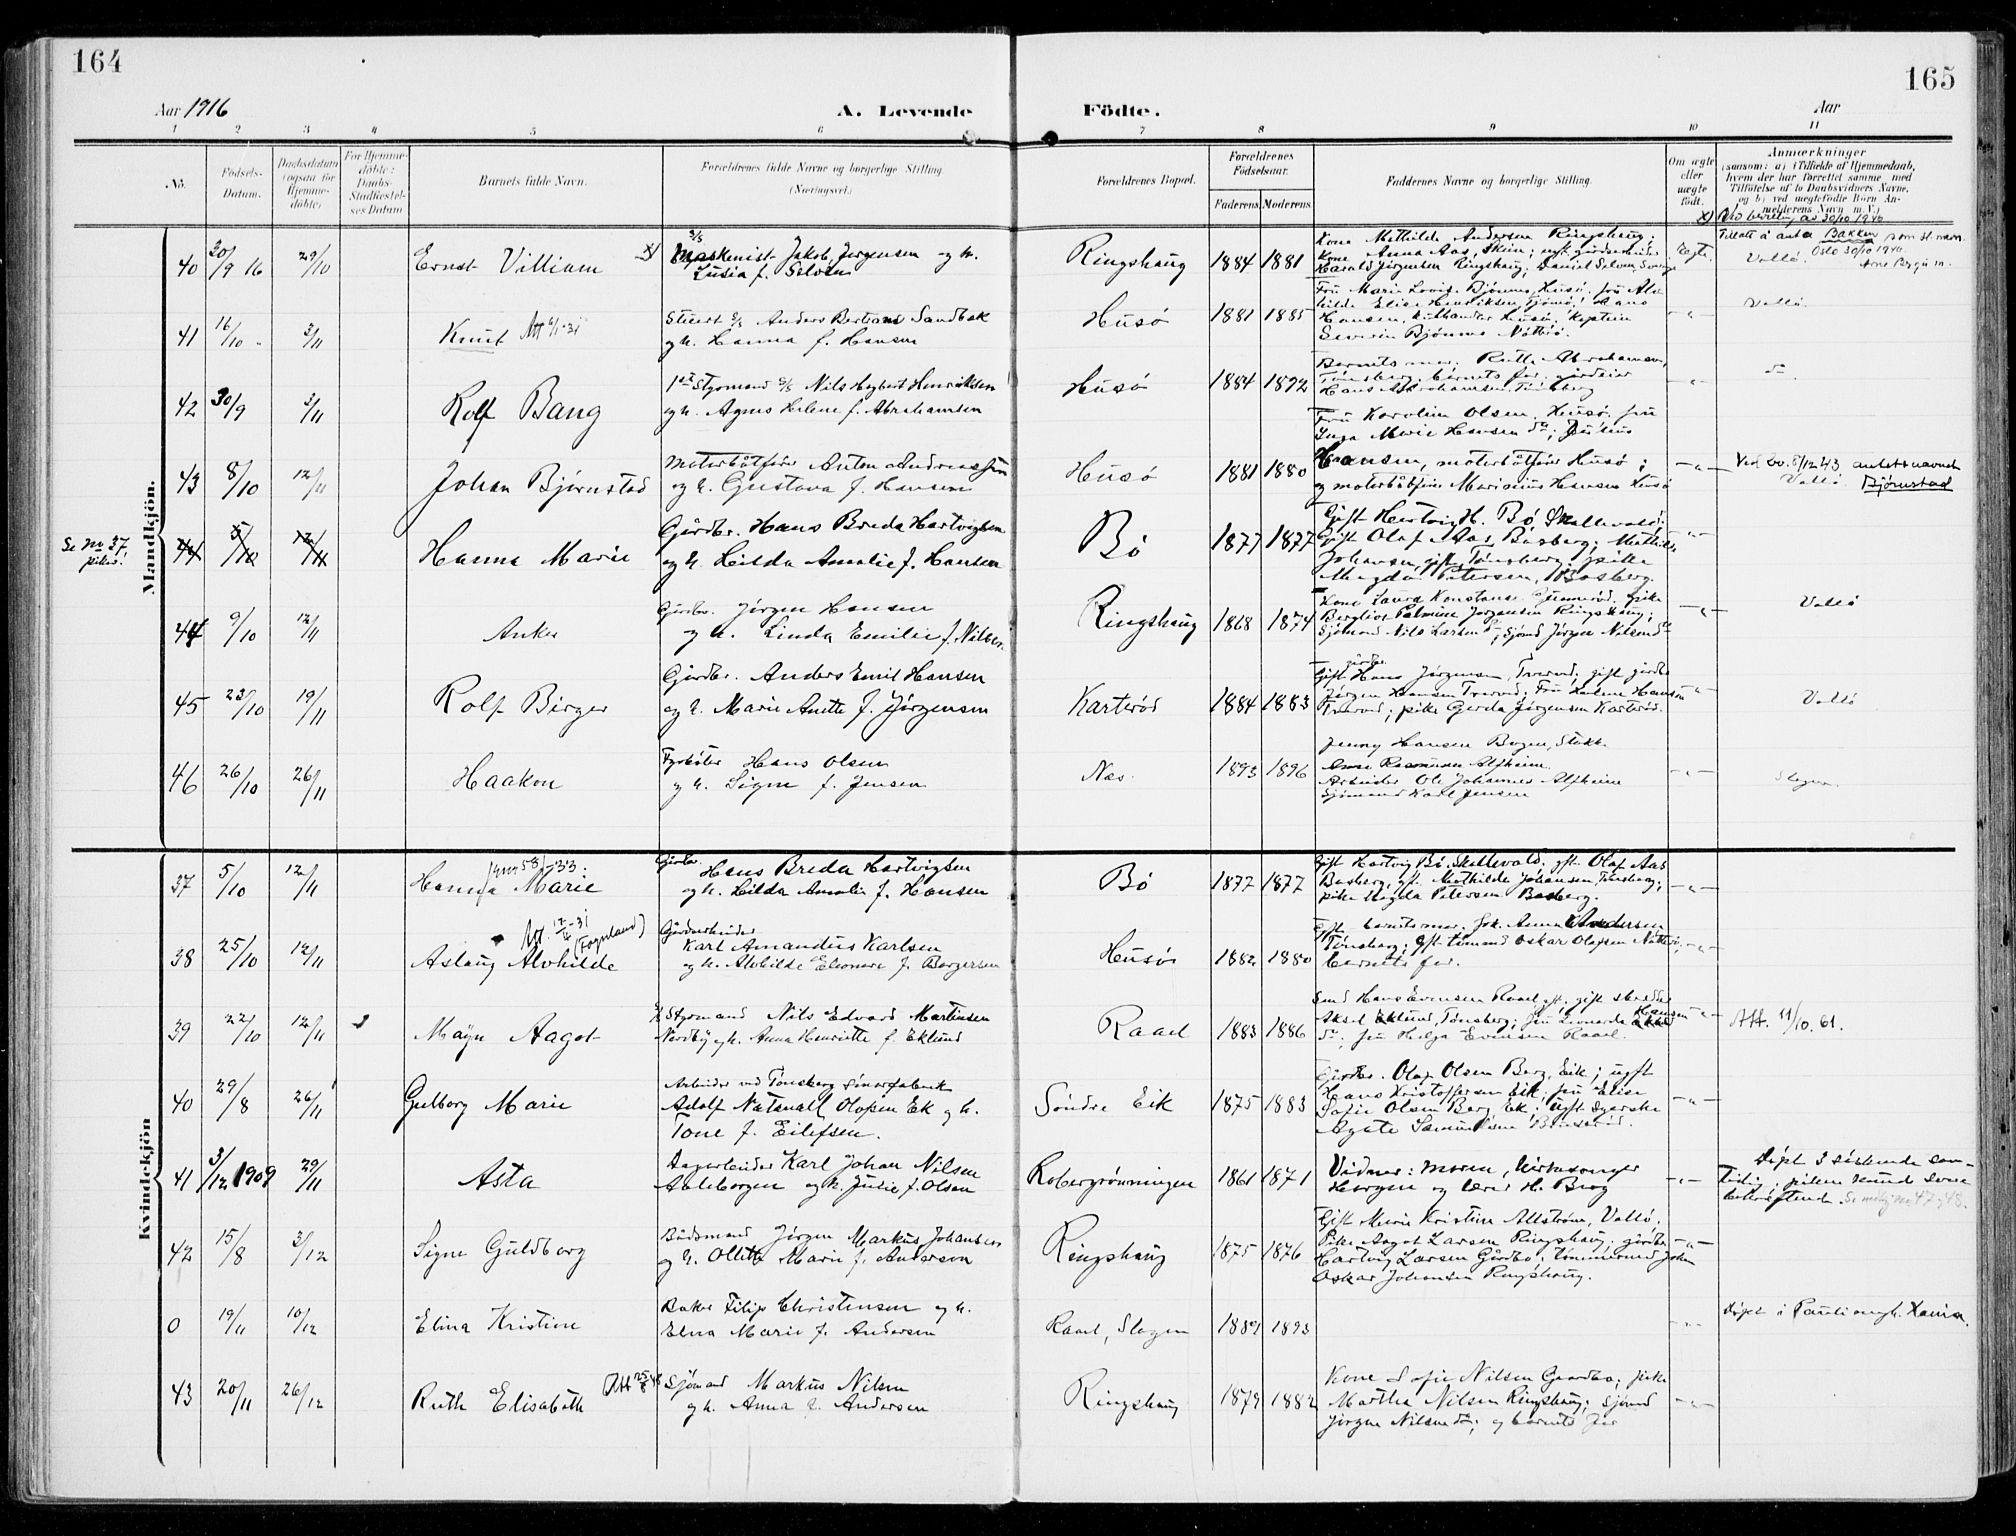 164
165
Aar 1916
A. Levende Födte.
Aar
1 2 3 4 5 6 7 8 9 10 11
No.
Födsels-Datum.
Daabsdatum (ogsaa for Hjemme-döbte)
For Hjemme-döbte: Daabs-Stadfæstel-ses Datum
Barnets fulde Navn.
Forældrenes fulde Navne og borgerlige Stilling (Næringsvei.)
Forældrenes Bopæl.
Forældrenes Födselsaar.
Faderens. Moderens.
Faddernes Navne og borgerlige Stilling.
Om ægte eller uægte födt.
Anmærkninger (saasom: a) i Tilfælde af Hjemmedaab, hvem der har forrettet samme med Tilföielse af to Daabsvidners Navne, og b) ved uægtefödte Börn An-melderens Navn m. V.)
Mandkjön.
40 30/9 16 29/10 Ernst Villiam x) Maskinist Jakob Jørgensen og h. Lusia f. Selven Ringshaug 1884 1881 Kone Mathilde Andersen Ringshaug; Kone Anna Aas, Skien; Harald Jørgensen Ringshaug; Daniel Selven, Ægte. x) Ved bevilling av 30/10 1940 Tillatt å anta Bakken som sl. navn Oslo 30/10 1940 Vallö.
41 16/10 3/11 Knut Att 6/1-31 Stuert s/s Anders Bertram Sandbæk og h. Hanna f. Hansen Husö 1881 1885 Fru Marie Lovise Bjönnes, Husö; fru Alvhilde Elise Henriksen, Tjömö; Hans Hansen, Husö; Kaptein Severin Bjönnes Nötterö. -"- Vallö.
42 30/9 3/11 Rolf Bang 1ste Styrmand s/s Nils Herbert Henriksen og h. Agnes Helene f. Abrahamsen Husö 1884 1892 Barnets mor; Ruth Abrahamsen, Tönsberg; barnets far; gårdeier Hans Abrahamsen, Tönsberg -"-
43 8/10 12/11 Johan Bjørnstad Motorbåtfører Anton Andreassen og h. Gustava f. Hansen Husö 1881 1880 Fru Karoline Olsen, Husö; fru Inga Marie Hansen; Julius Hansen, motorbåtfører Husö; og motorbåtfører Marinius Hansen Husö -"- Ved bv. 8/12 43 antatt navnet Bjørnstad Vallö
Se No 37 piker! 44 5/10 12/11 Hanna Marie Gårdbr. Hans Breda Hartvigsen og h. Hilda Amalie f. Hansen Bö 1877 1877 Gift Hartvig H. Bö Skallevold; Gift Olaf Aas, Basberg; Mathilde Johansen, gift, Tönsberg; pike Magda Petersen, Basberg. -"-
44 9/10 12/11 Anker Gårdbr. Jørgen Hansen og h. Linda Emilie f. Nilsen Ringshaug 1868 1874 Kone Laura Konstanse Gunneröd, pike Bergliot Palmine Jørgensen Ringshaug; Sjömand Nils Larsen do; Sjömd Jörgen Nilsen do -"- Vallö
45 23/10 19/11 Rolf Birger Gårdbr. Anders Emil Hansen og h. Marie Anette f. Jørgensen Karteröd 1884 1883 Gift gårdbr. Hans Jørgensen, Tveved; gift gårdbr Jørgen Hansen Tveved; Fru Helene Hansen Tveved; pike Gerda Jørgensen Karteröd. -"- Vallö
46 26/10 26/11 Haakon Fyrböter Hans Olsen og h. Signe f. Jensen Næs. 1893 1896 Jenny Hansen Bogen, Stokke Rasmussen Alfheim Arbeider Ole Johannes Alfheim Sjömand Karl Jensen -"- Slagen
Kvindekjön
37 5/10 12/11 Hanna Marie jnr 58/-33: Gårdbr. Hans Breda Hartvigsen og h. Hilda Amalie f. Hansen Bö 1877 1877 Gift Hartvig Bö Skallevold; gft. Olaf Aas Basberg, gft. Mathilde Johansen, Tönsberg; pike Magda Petersen Basberg. -"-
38 25/10 12/11 Aslaug Alvhilde Att. 12/6-31 (Fogneland) Gårdarbeider Karl Amandus Karlsen og h. Alvhilde Eleonore f. Borgersen Husö 1882 1880 Gift barnets mor; frk. Anna Andersen Tönsberg; Gift tömmand Oskar Olafsen Nötterö, barnets far. -"-
39 22/10 12/11 Mayn Aagot s/s Styrmand Nils Edvard Martinsen Nordby og h. Anna Henriette f. Eklund Raael 1883 1886 Smed Hans Evensen Raael, gft, gift skredder Aksel Eklund, Tönsberg; fru Leonarda Hansen Eklund do; fru Helga Evensen Raael. -"- Att. 11/10. 61.
40 29/8 26/11 Gulborg Marie Arbeider ved Tönsberg smörfabrik Adolf Natanael Olofsen Ek og h. Tone f. Eilefsen. Söndre Eik 1875 1883 Gårdbr. Olaf Olsen Berg, Eik; ugft Hans Kristoffersen Eik, fru Elise Sofie Olsen Berg Eik; Ugft syerske Agate Samuelsen -"-
41 3/12 1909 29/11 Asta Dagarbeider Karl Johan Nilsen Adleborgen og h. Julie f. Olsen Robergrønningen 1861 1871 Vidner: moren, kirkesanger Horgen og lærer H. Berg -"- Döpt 3 söskende samtidig; piken kunde svare bekræftende. Se mkj nr 47 og 48.
42 15/8 3/12 Signe Guldborg Budsmand Jørgen Markus Johansen og h. Ollette Marie f. Anderson Ringshaug 1875 1876 Gift Marie Kristine Allström, Vallö; Pike Aagot Larsen Ringshaug; gårdbr Hartvig Larsen Gårdbo; tömmermd John Oskar Johansen Ringshaug. -"-
0 19/11 10/12 Elina Kristine Baker Filip Christensen og h. Elna Marie f. Andersen Raael, Slagen 1889 1893 -"- Döpt i
43 20/11 26/12 Ruth Elisabeth Att 25/8 48 Sjömand Markus Nilsen og h. Anna f. Andersen Ringshaug 1879 1882 Kone Sofie Nilsen Gaardbo; pike Martha Nilsen Ringshaug; Sjömd Jörgen Nilsen do; og barnets far -"-